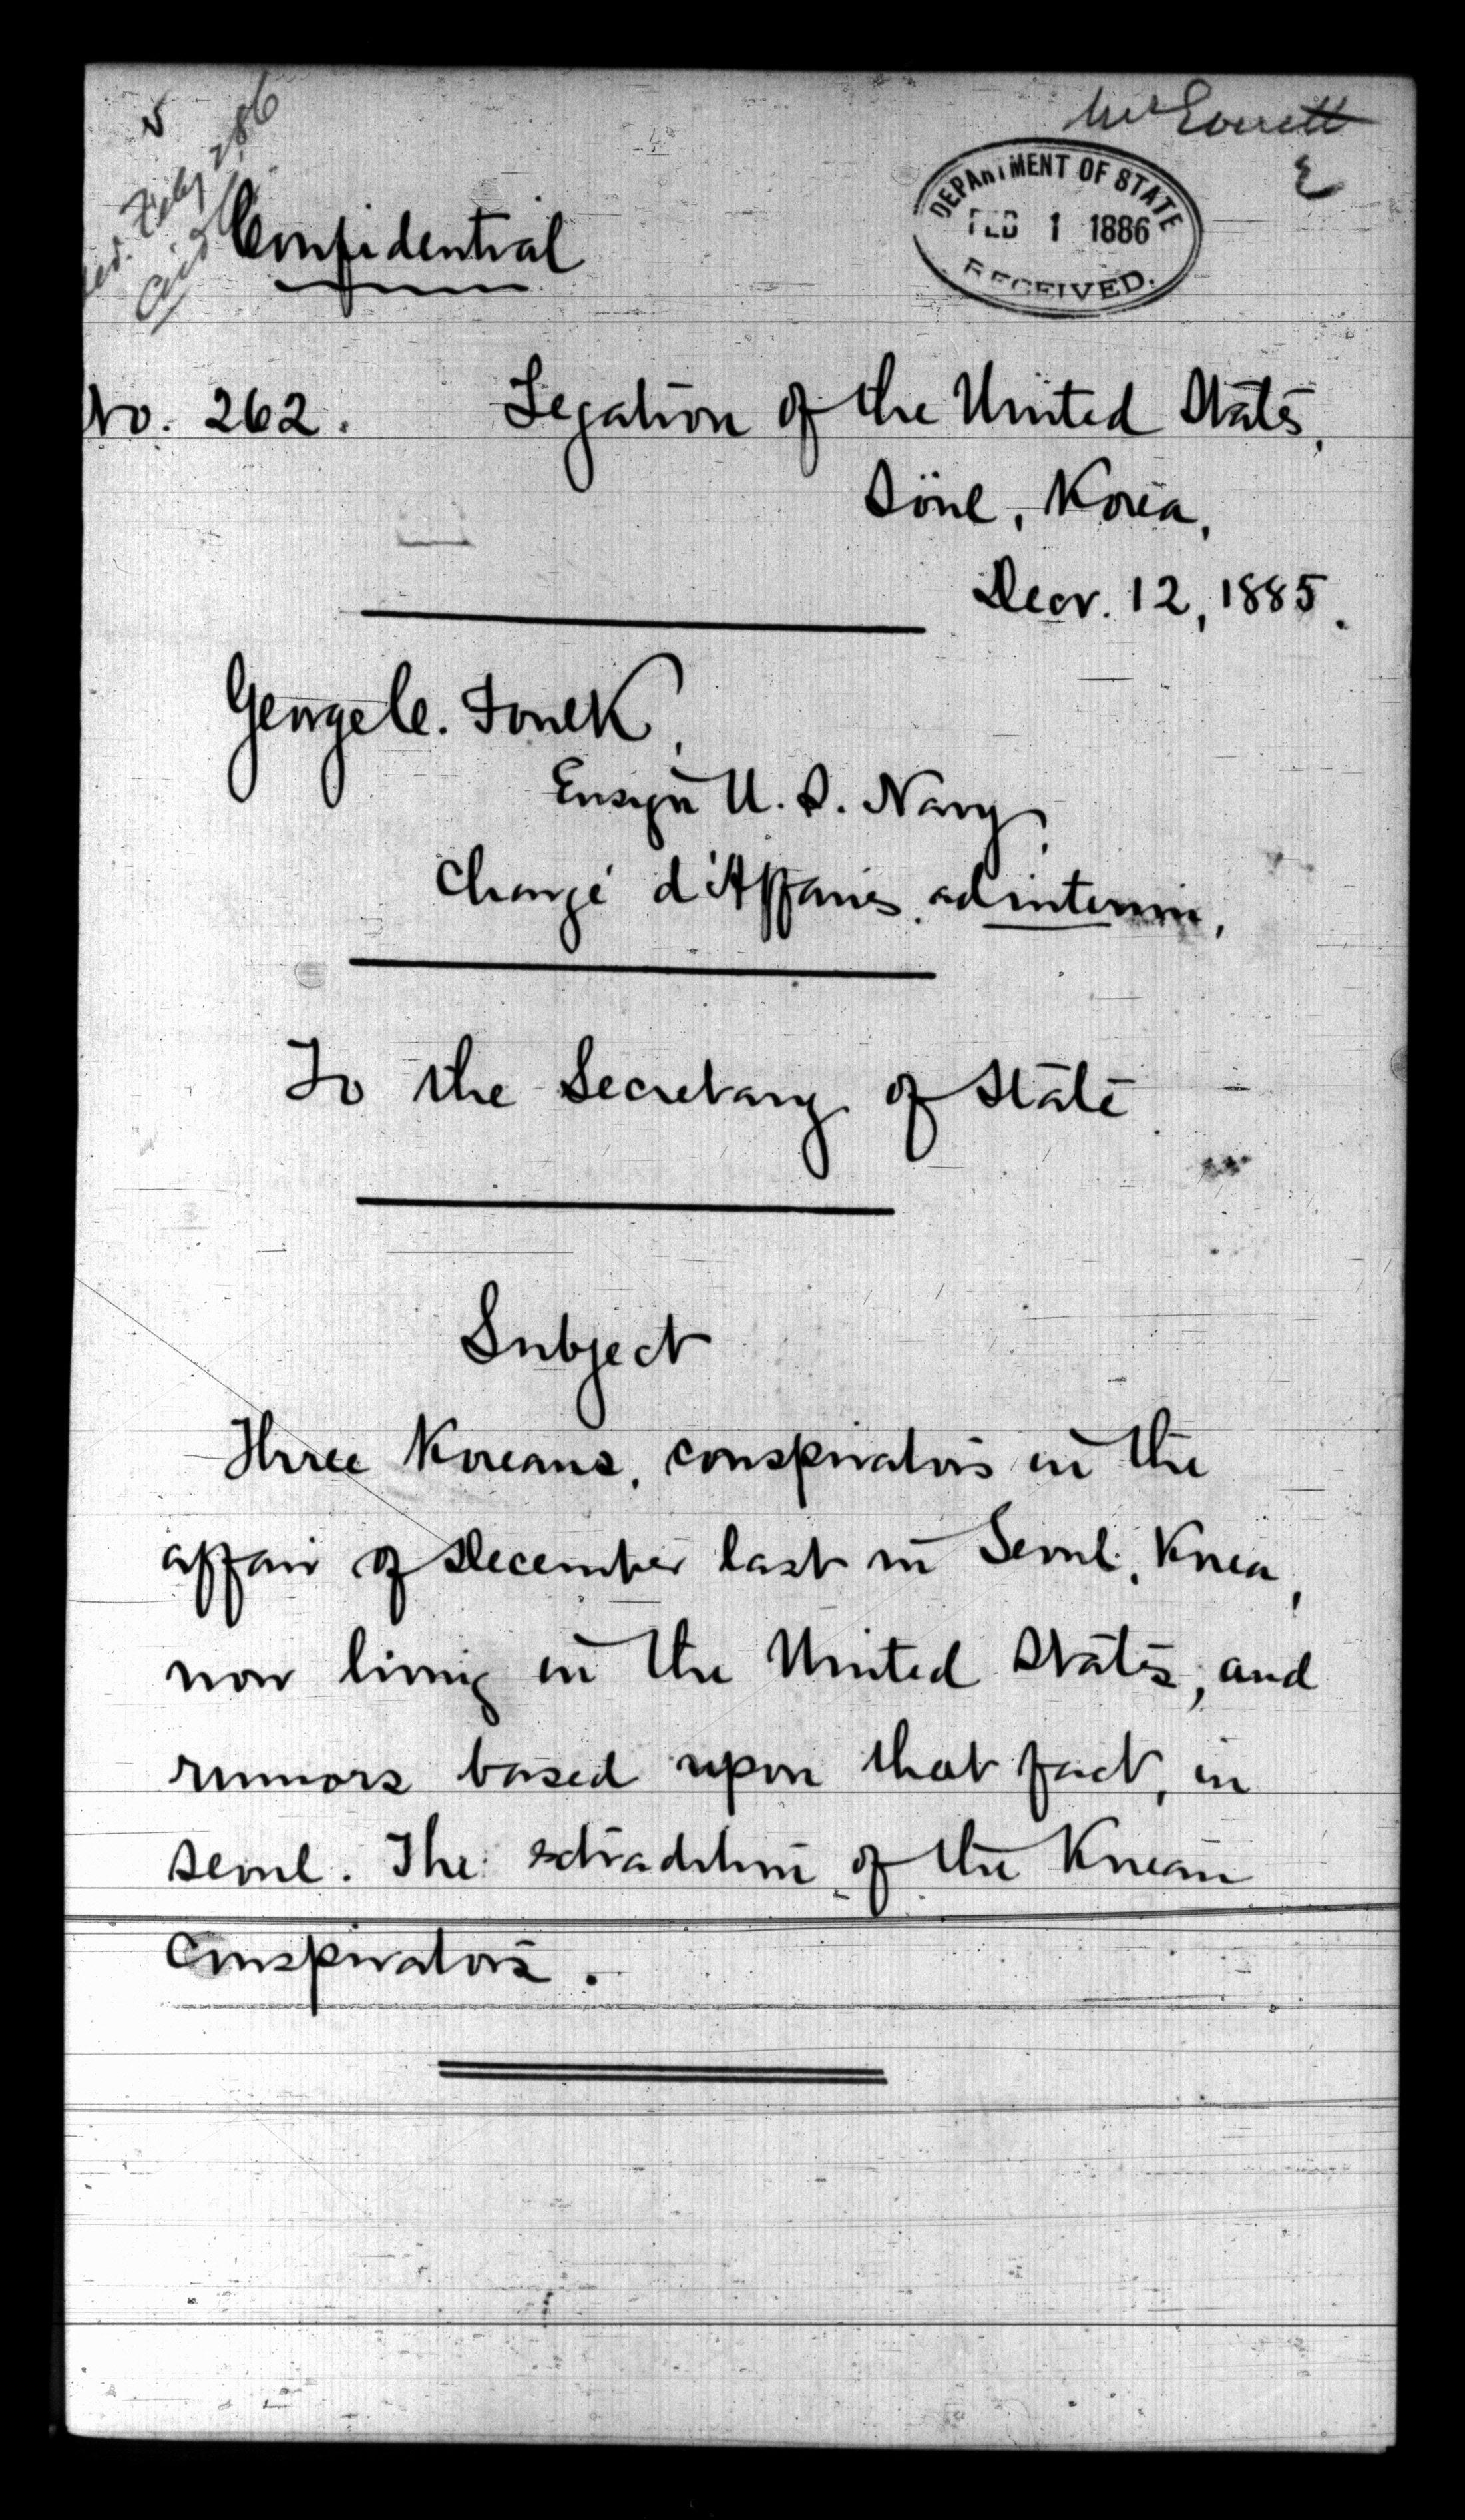 Mr Everett
DEPARTMENT OF STATE
FEB 1 1886
RECEIVED.
Feby 2, 86
Confidential
No. 262. Legation of the United States,
Söul, Korea,
Decr. 12, 1885.
George C. Foulk,
Ensign U. S. Navy,
Chargé d'Affaires ad interim,
To the Secretary of State
Subject
Three Koreans, conspirators in the
affair of December last in Seoul, Korea,
now living in the United States, and
rumors based upon that fact, in
Seoul. The extradition of the Korean
conspirators.